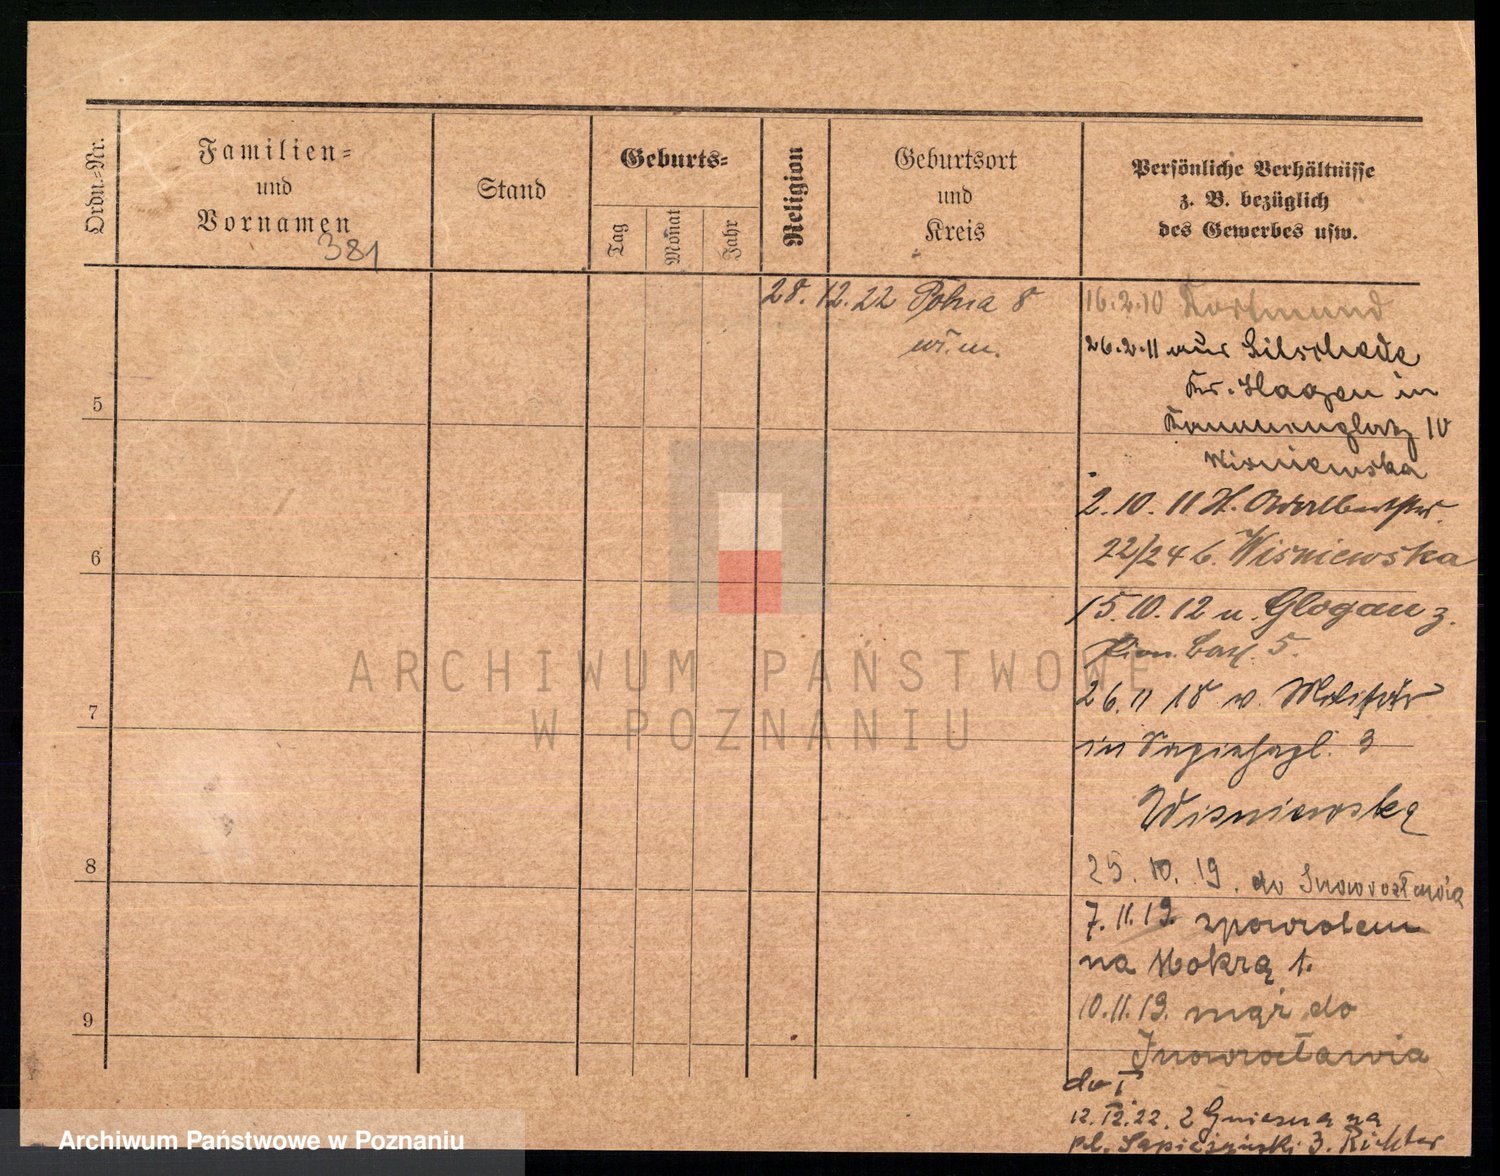 Ordn.=Nr.
Familien=
und
Vornamen
381
Stand
Geburts=
Tag
Monat
Jahr
Religion
Geburtsort
und
Kreis
Persönliche Verhältnisse
z. B. bezüglich
des Gewerbes usw.
28. 12. 22 Polna 8
16.2.10 Dortmund
26.2.11 aus Silschede
Kr. Hagen in
10
Wisniewska
5
2.10.11 H. Adalbertstr.
22/24 b. Wisniewska
6
15.10.12 n. Glogau z.
Pion. Batl. 5.
26.11 18 v. Militär
in Sapiehapl. 3
7
Wisniewską
25. 10. 19. do Inowrocławia
8
7.11.19. zpowrotem
na Mokrą 1.
10.11.19. mąż do
Inowrocławia
9
do I
12.12.22. z Gniezna na
pl. Sapieżyński 3. Richter
ARCHIWUM PAŃSTWOWE
W POZNANIU
Archiwum Państwowe w Poznaniu